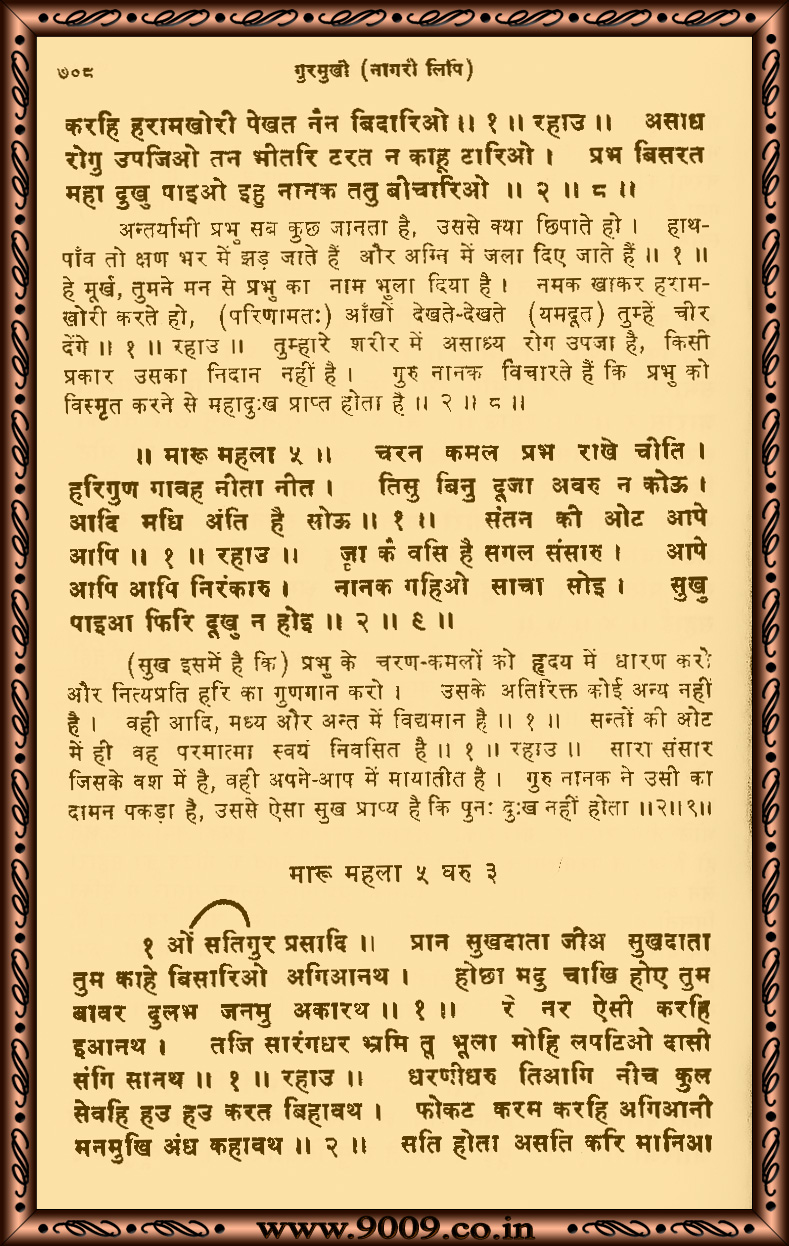 ७०८ गुरमुखी (नागरी लिपि)
करहि हरामखोरी पेखत नैन बिदारिओ ॥ १ ॥ रहाउ ॥ असाध
रोगु उपजिओ तन भीतरि टरत न काहू टारिओ । प्रभ बिसरत
महा दुखु पाइओ इहु नानक ततु बीचारिओ ॥ २ ॥ ८ ॥
अन्तर्यामी प्रभु सब कुछ जानता है, उससे क्या छिपाते हो । हाथ-
पाँव तो क्षण भर में झड़ जाते हैं और अग्नि में जला दिए जाते हैं ॥ १ ॥
हे मूर्ख, तुमने मन से प्रभु का नाम भुला दिया है । नमक खाकर हराम-
खोरी करते हो, (परिणामतः) आँखों देखते-देखते (यमदूत) तुम्हें चीर
देंगे ॥ १ ॥ रहाउ ॥ तुम्हारे शरीर में असाध्य रोग उपजा है, किसी
प्रकार उसका निदान नहीं है । गुरु नानक विचारते हैं कि प्रभु को
विस्मृत करने से महादुःख प्राप्त होता है ॥ २ ॥ ८ ॥
॥ मारू महला ५ ॥ चरन कमल प्रभ राखे चीति ।
हरिगुण गावह नीता नीत । तिसु बिनु दूजा अवरु न कोऊ ।
आदि मधि अंति है सोऊ ॥ १ ॥ संतन की ओट आपे
आपि ॥ १ ॥ रहाउ ॥ जा कै वसि है सगल संसारु । आपे
आपि आपि निरंकारु । नानक गहिओ साचा सोइ । सुखु
पाइआ फिरि दूखु न होइ ॥ २ ॥ ९ ॥
(सुख इसमें है कि) प्रभु के चरण-कमलों को हृदय में धारण करो
और नित्यप्रति हरि का गुणगान करो । उसके अतिरिक्त कोई अन्य नहीं
है । वही आदि, मध्य और अन्त में विद्यमान है ॥ १ ॥ सन्तों की ओट
में ही वह परमात्मा स्वयं निवसित है ॥ १ ॥ रहाउ ॥ सारा संसार
जिसके वश में है, वही अपने-आप में मायातीत है । गुरु नानक ने उसी का
दामन पकड़ा है, उससे ऐसा सुख प्राप्य है कि पुनः दुःख नहीं होता ॥२॥९॥
मारू महला ५ घरु ३
१ ओं सतिगुर प्रसादि ॥ प्रान सुखदाता जीअ सुखदाता
तुम काहे बिसारिओ अगिआनथ । होछा मदु चाखि होए तुम
बावर दुलभ जनमु अकारथ ॥ १ ॥ रे नर ऐसी करहि
इआनथ । तजि सारंगधर भ्रमि तू भूला मोहि लपटिओ दासी
संगि सानथ ॥ १ ॥ रहाउ ॥ धरणीधरु तिआगि नीच कुल
सेवहि हउ हउ करत बिहावथ । फोकट करम करहि अगिआनी
मनमुखि अंध कहावथ ॥ २ ॥ सति होता असति करि मानिआ
www.9009.co.in